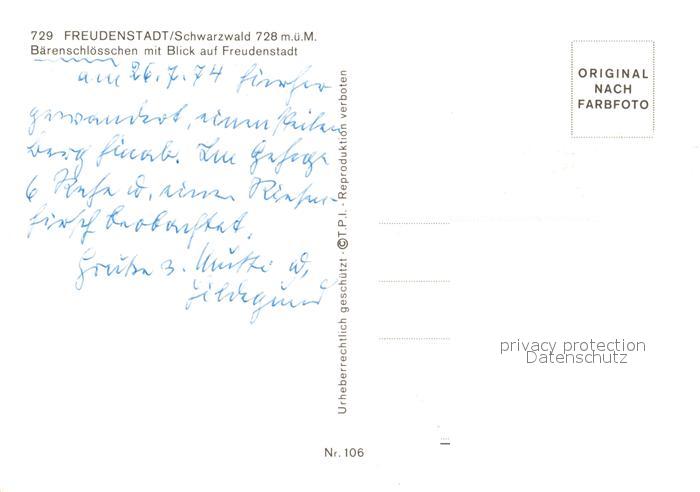 729 FREUDENSTADT/Schwarzwald 728 m.ü.M.
Bärenschlösschen mit Blick auf Freudenstadt
am 26.7.74 hierher
gewandert, einen steilen
Berg hinab. Im Gehege
6 Rehe u. einen Riesen-
hirsch beobachtet.
Mutti u.
Hildegund
Urheberrechtlich geschützt · ©T.P.I. - Reproduktion verboten
Nr. 106
ORIGINAL
NACH
FARBFOTO
privacy protection
Datenschutz